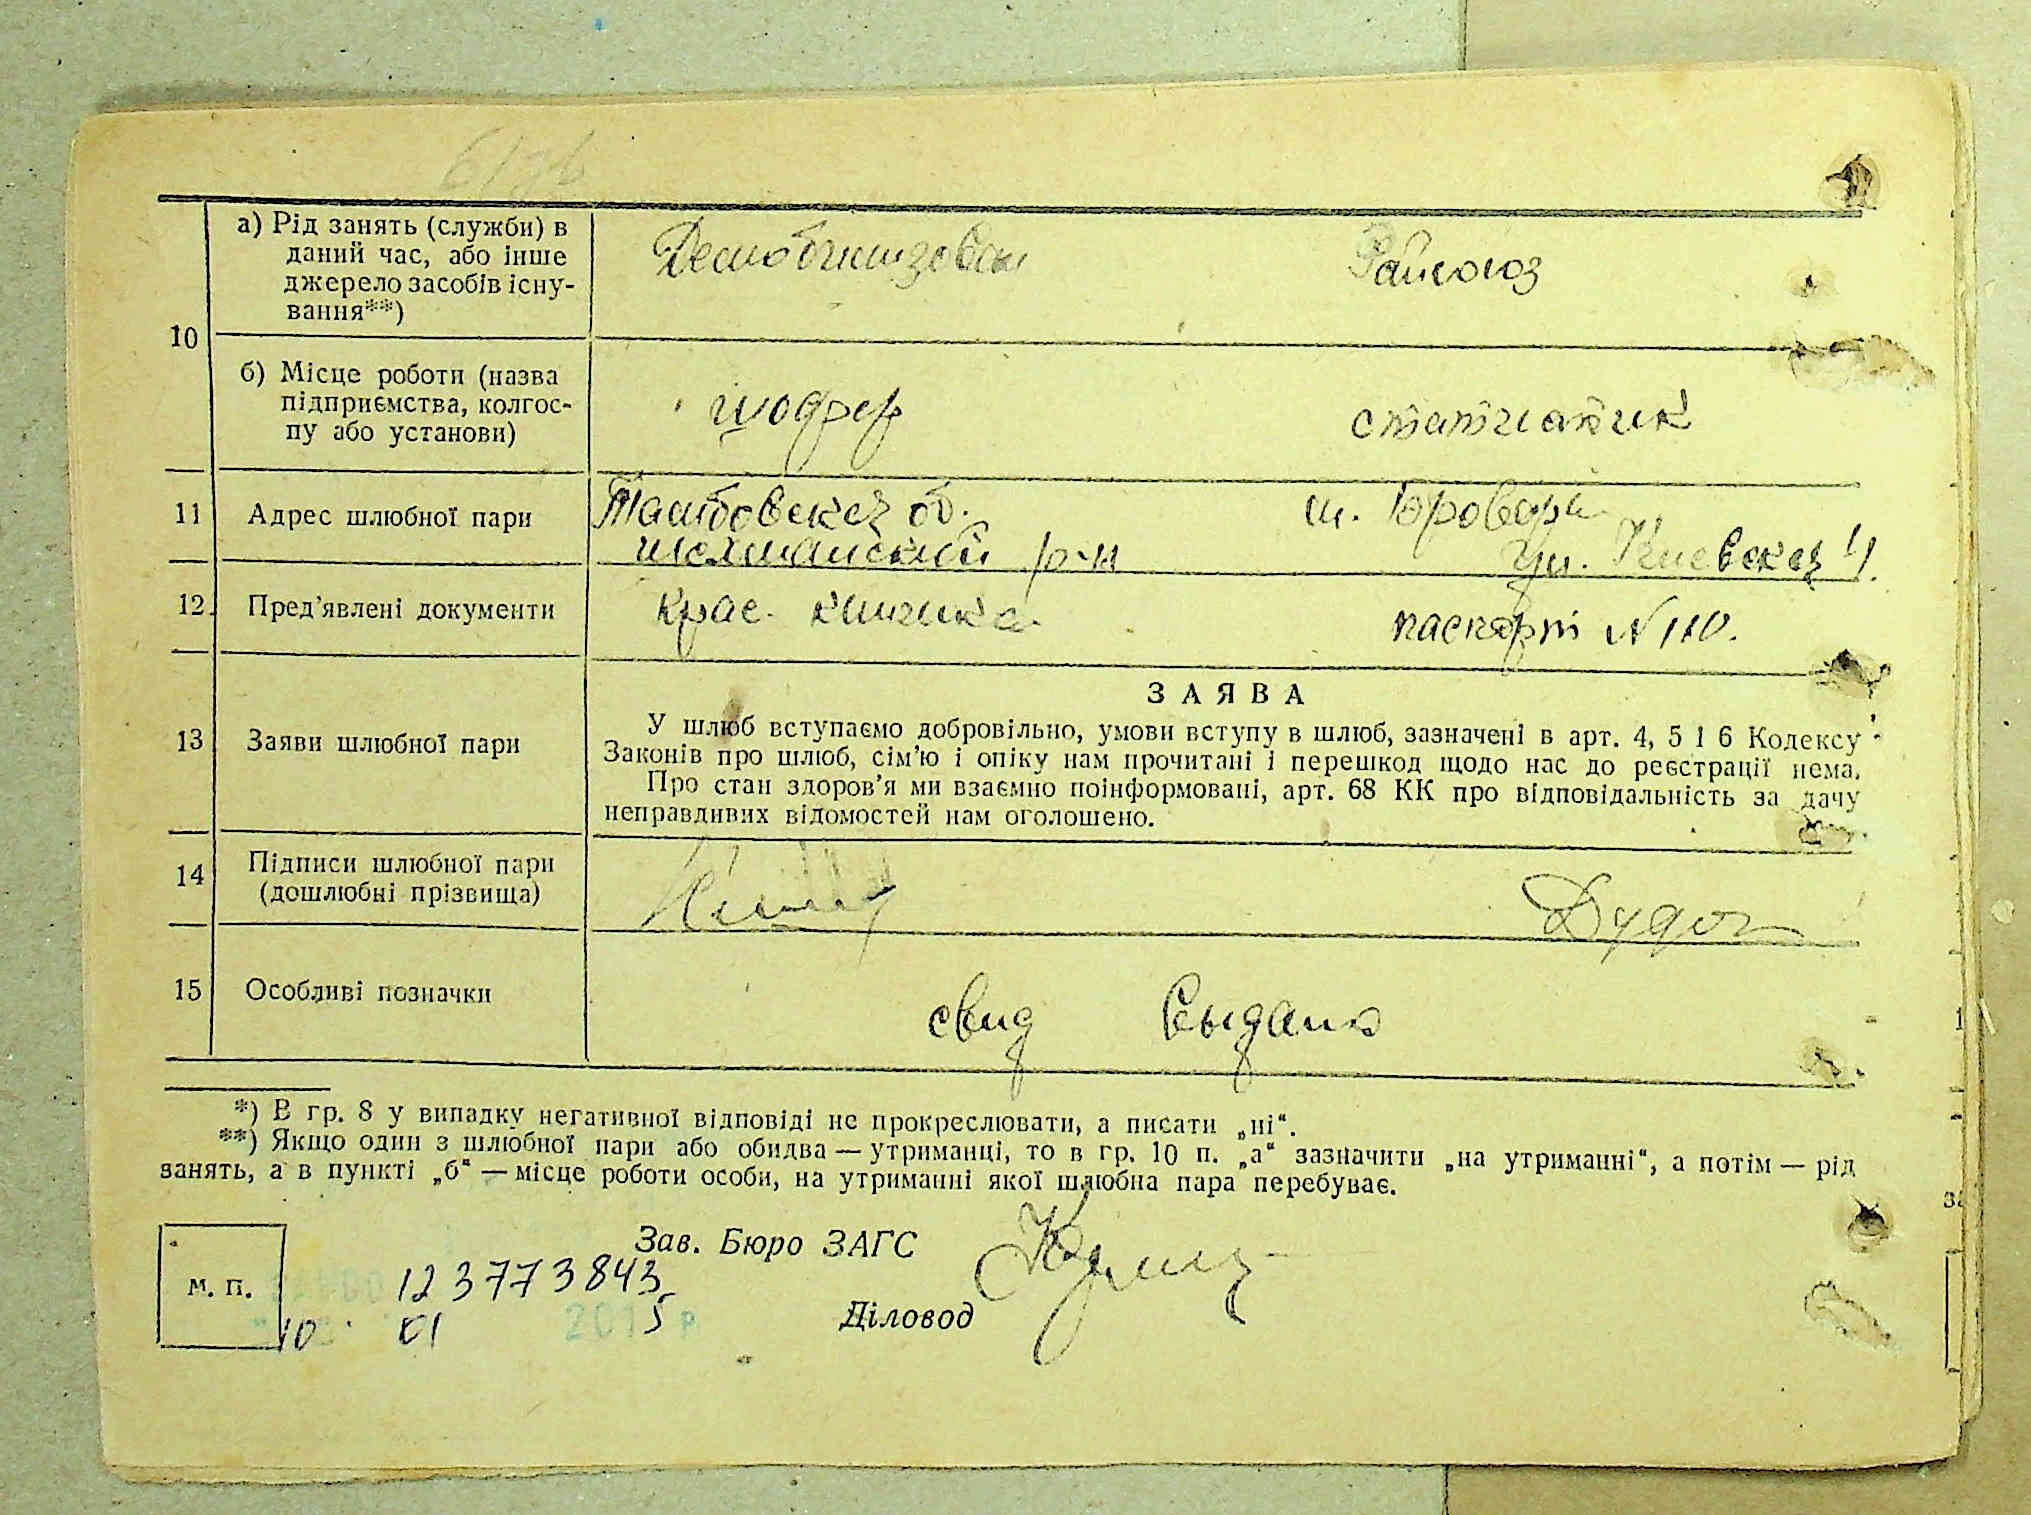 а) Рід занять (служби) в
даний час, або інше
джерело засобів існу-
вання**)
Демобилизован
Райсоюз
10
б) Місце роботи (назва
підприємства, колгос-
пу або установи)
шофер
статистик
11
Адрес шлюбної пари
Тамбовская об.
р-н
м. Бровари
ул. Киевская
12.
Пред'явлені документи
Крас. книжка
паспорт N 110.
13
Заяви шлюбної пари
ЗАЯВА
У шлюб вступаємо добровільно, умови вступу в шлюб, зазначені в арт. 4, 5 і 6 Кодексу
Законів про шлюб, сім'ю і опіку нам прочитані і перешкод щодо нас до реєстрації нема.
Про стан здоров'я ми взаємно поінформовані, арт. 68 КК про відповідальність за дачу
неправдивих відомостей нам оголошено.
14
Підписи шлюбної пари
(дошлюбні прізвища)
15
Особливі позначки
свид выдано
*) В гр. 8 у випадку негативної відповіді не прокреслювати, а писати „ні“.
**) Якщо один з шлюбної пари або обидва — утриманці, то в гр. 10 п. „а“ зазначити „на утриманні“, а потім — рід
занять, а в пункті „б“ — місце роботи особи, на утриманні якої шлюбна пара перебуває.
Зав. Бюро ЗАГС
м. п.
123773843
Діловод
10 01 2015 р